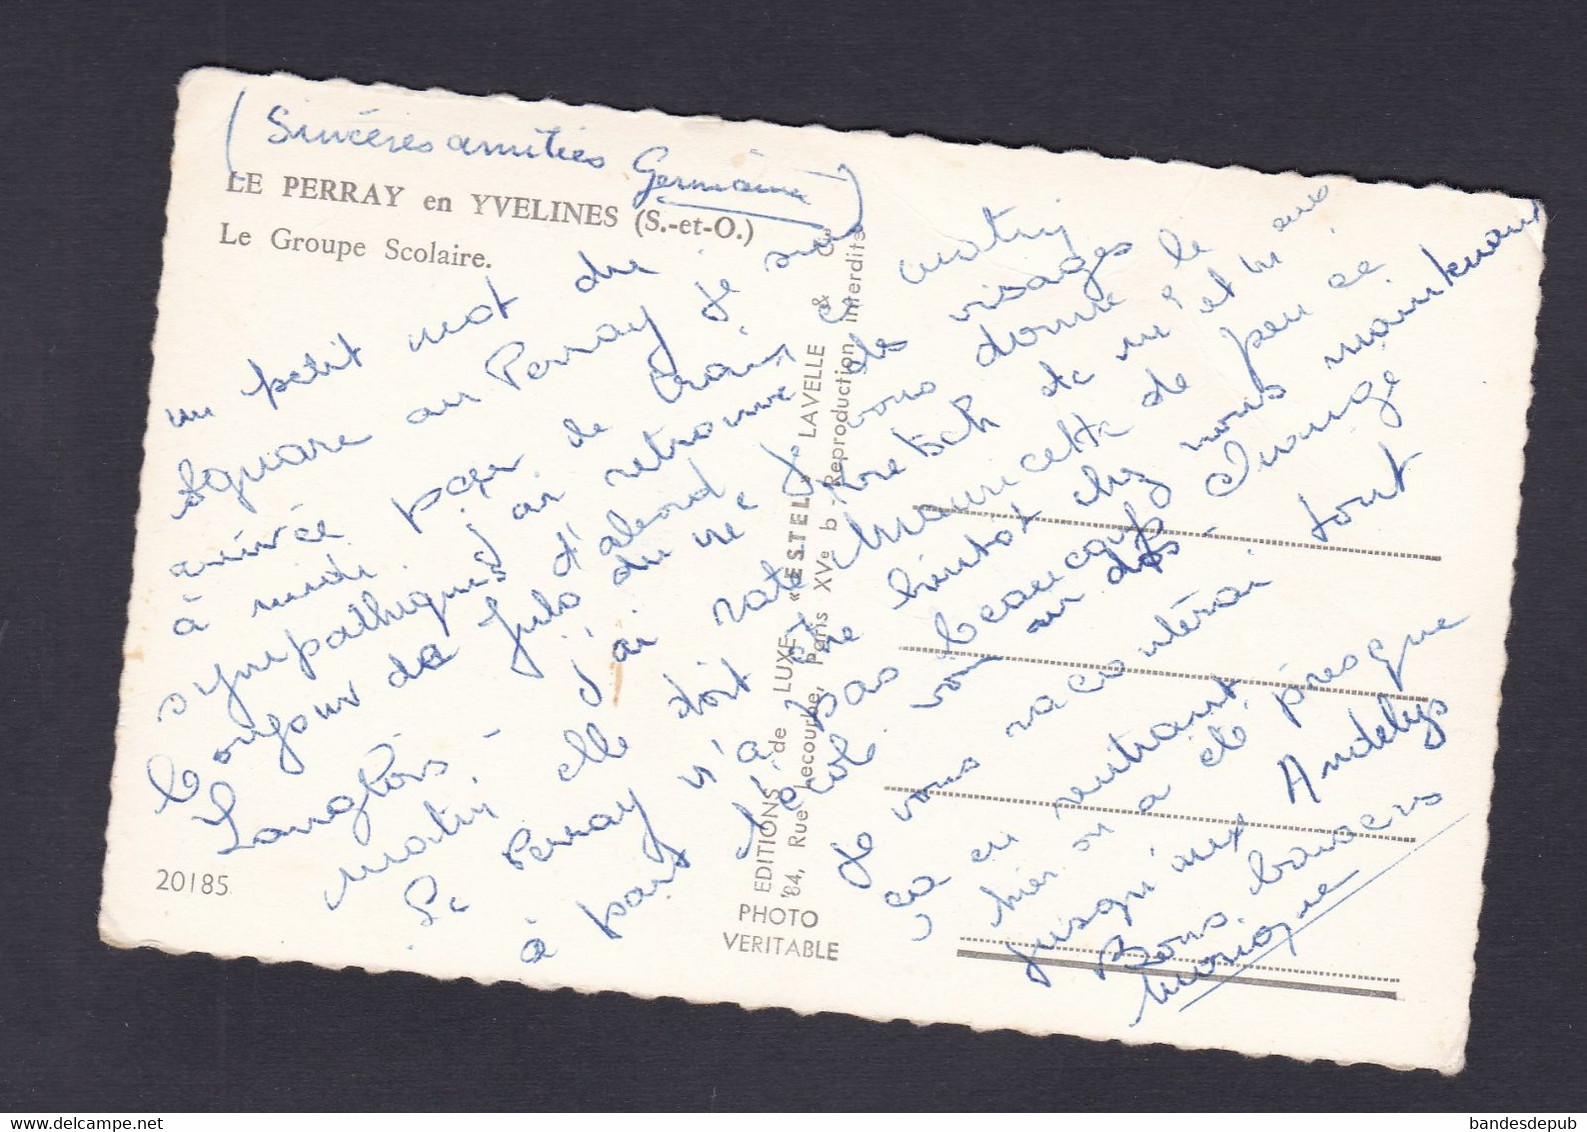 (Sincères amitiés Germaine)
LE PERRAY en YVELINES (S.-et-O.)
Le Groupe Scolaire.
un petit mot du
square au Perray je suis
arrivée par le train ce matin
à midi. J'ai retrouvé des visages
sympathiques d'abord je vous donne le
bonjour de Jules du né
Langlois - J'ai raté Mauricette de peu ce
matin elle doit être bientôt chez nous maintenant
Le Perray n'a pas beaucoup changé
à part l'école vous
Je vous raconterai tout
ça en rentrant
hier on a été presque
jusqu'aux Andelys
Bons baisers
Monique
20185
EDITIONS de LUXE "ESTEL" LAVELLE & Cie
84, Rue Lecourbe, Paris XVe b - Reproduction interdite
PHOTO
VERITABLE
www.delcampe.net
bandesdepub